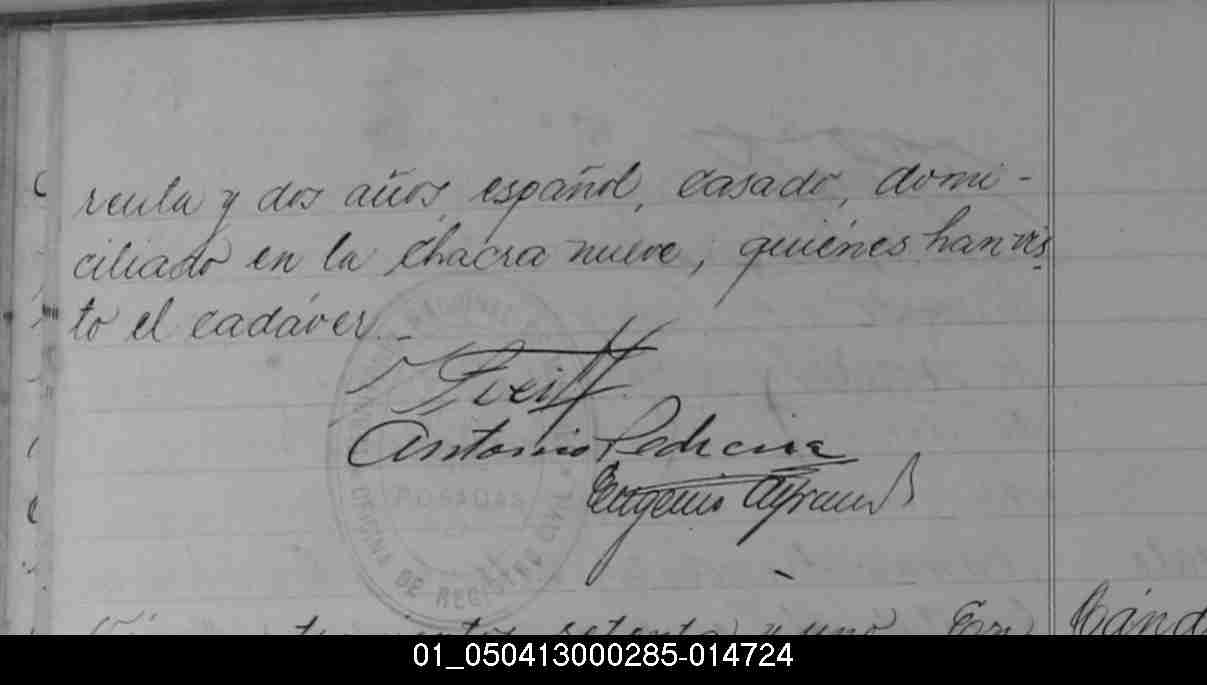 renta y dos años, español, casado, domi-
ciliado en la chacra nueve, quiénes han vis-
to el cadáver.-
Antonio Pedrena
Eugenio
POSADAS
OFICINA DE REGISTRO CIVIL
setenta y uno En
Cánd
01_050413000285-014724